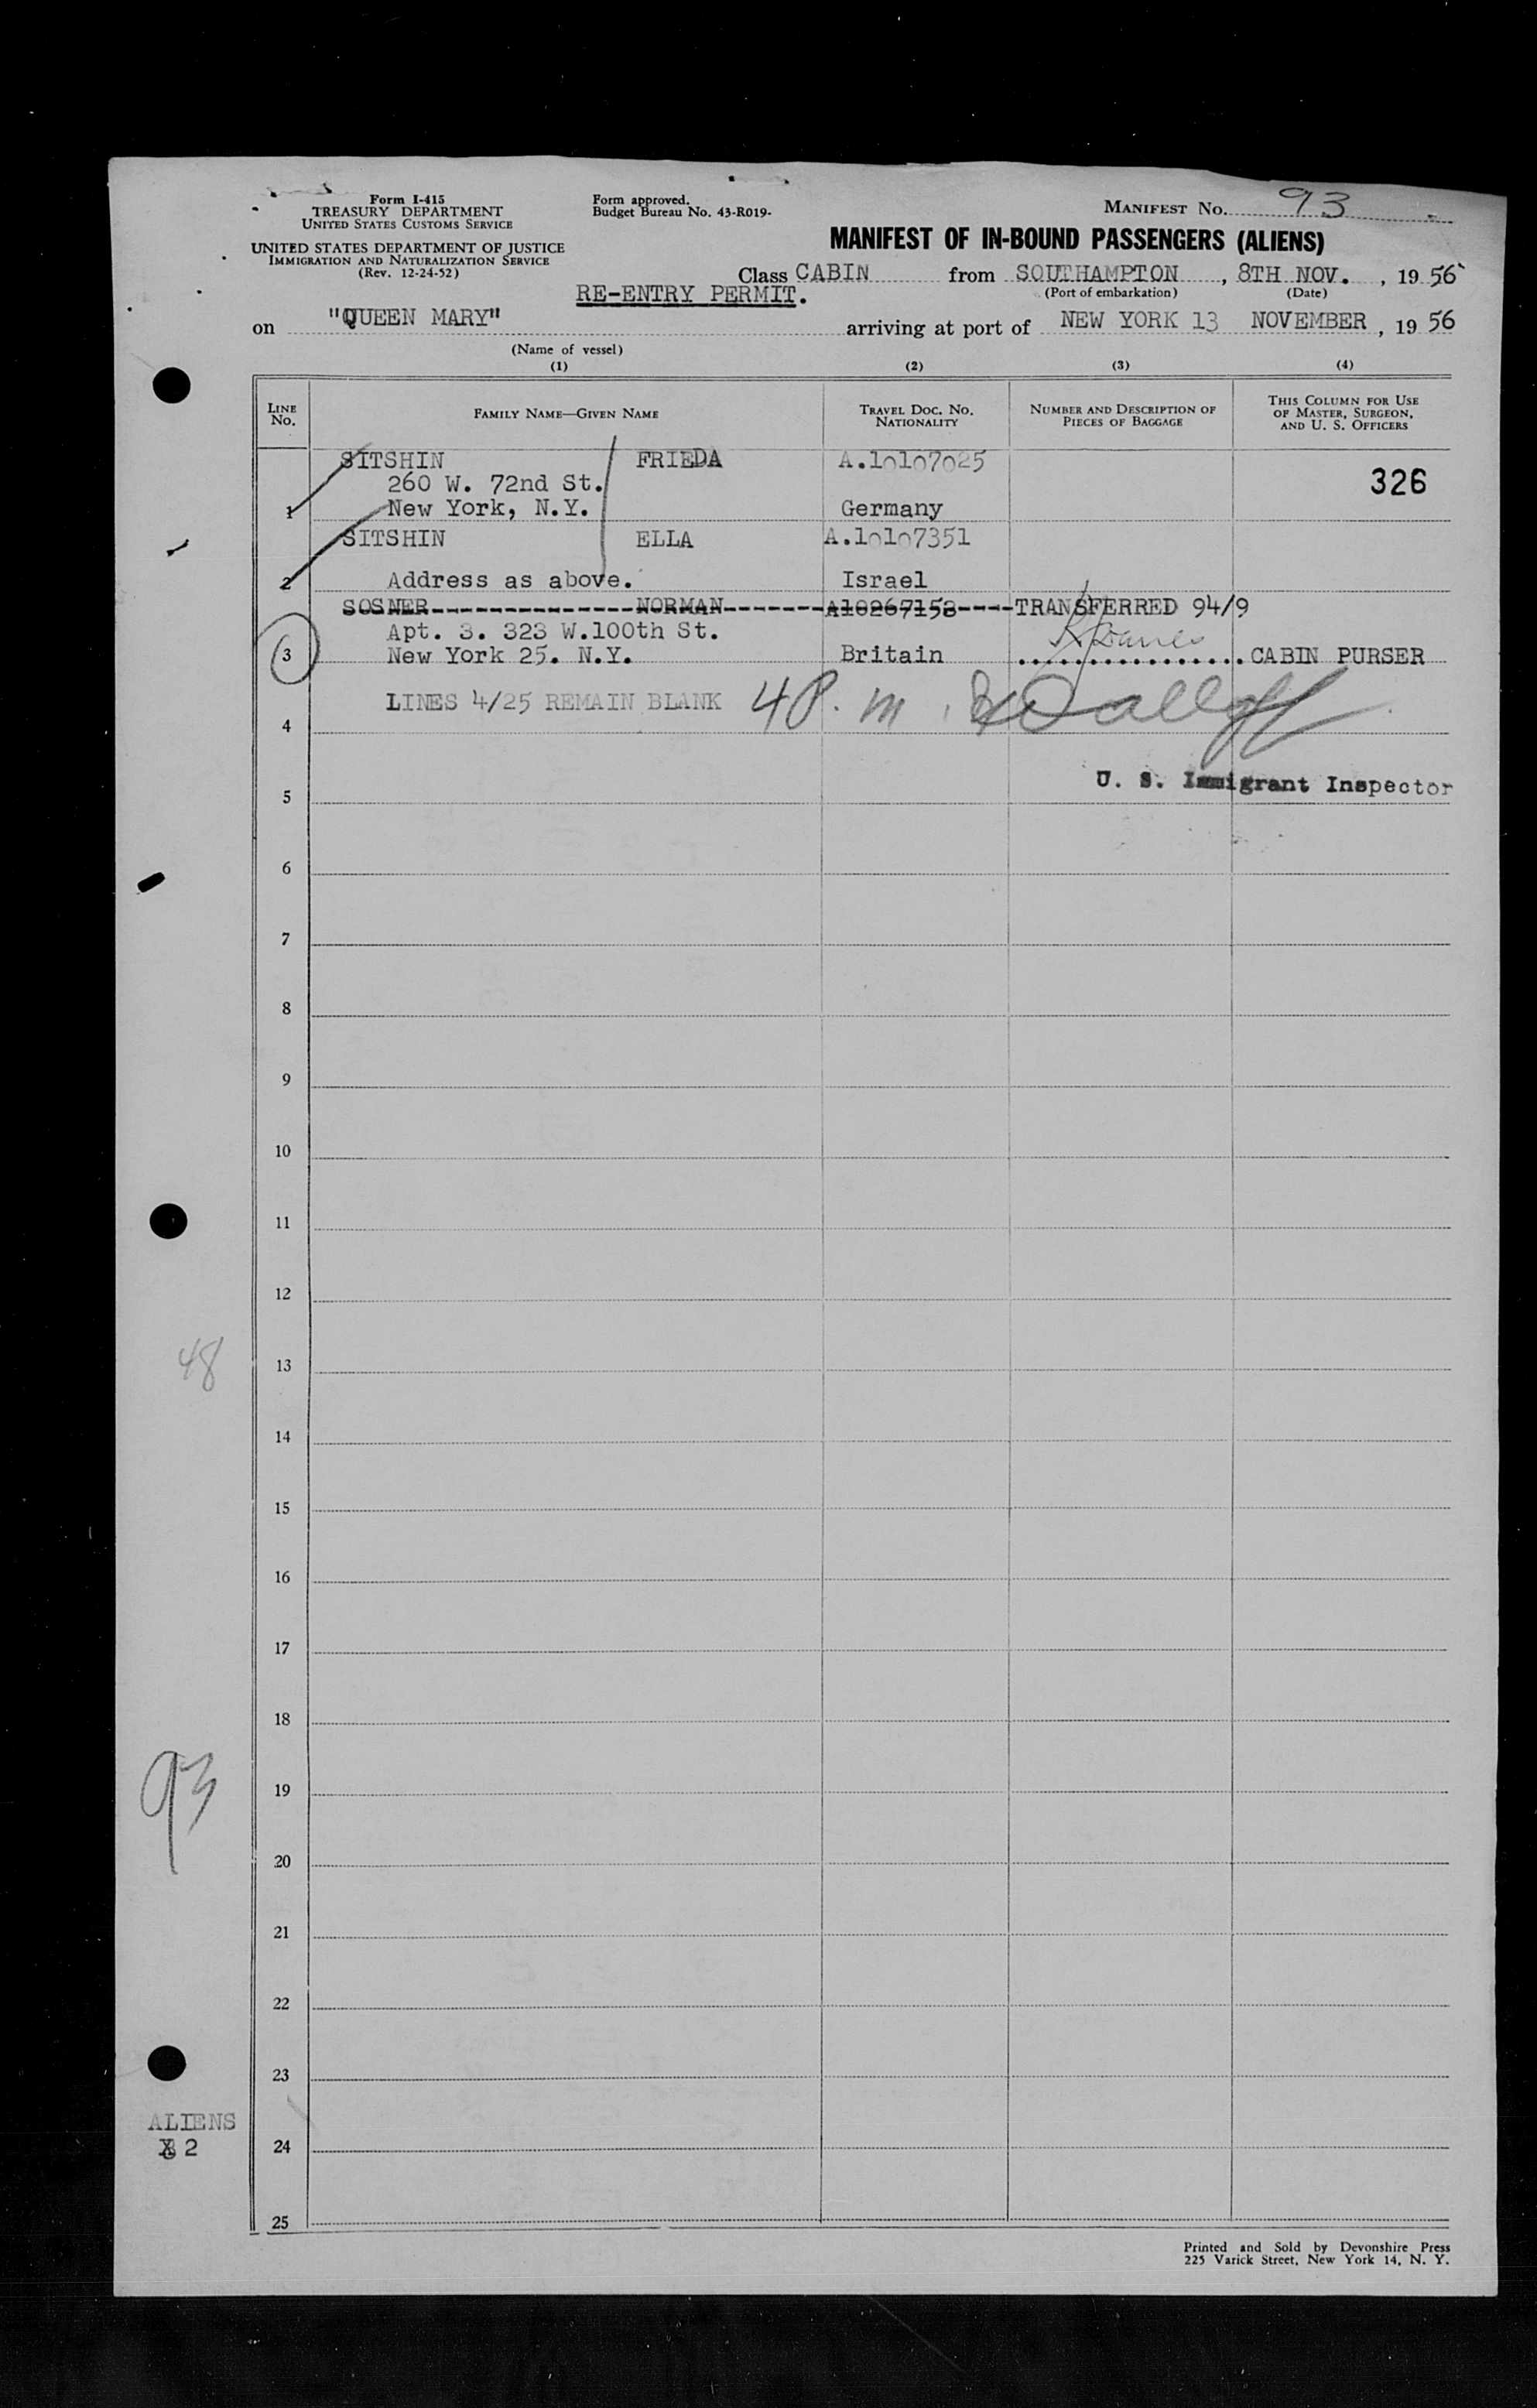 Form I-415
TREASURY DEPARTMENT
UNITED STATES CUSTOMS SERVICE
UNITED STATES DEPARTMENT OF JUSTICE
IMMIGRATION AND NATURALIZATION SERVICE
(Rev. 12-24-52)
Form approved.
Budget Bureau No. 43-R019-
MANIFEST NO. 93
MANIFEST OF IN-BOUND PASSENGERS (ALIENS)
Class CABIN from SOUTHAMPTON, 8TH NOV., 1956
RE-ENTRY PERMIT. (Port of embarkation) (Date)
on "QUEEN MARY" arriving at port of NEW YORK 13 NOVEMBER, 1956
(Name of vessel)
(1) (2) (3) (4)
LINE NO. FAMILY NAME—GIVEN NAME TRAVEL DOC. NO. NATIONALITY NUMBER AND DESCRIPTION OF PIECES OF BAGGAGE THIS COLUMN FOR USE OF MASTER, SURGEON, AND U. S. OFFICERS
SITSHIN FRIEDA A.10107025
260 W. 72nd St. 326
1 New York, N.Y. Germany
SITSHIN ELLA A.10107351
2 Address as above. Israel
SOSNER--------------NORMAN-------A10267153----TRANSFERRED 94/9
Apt. 3. 323 W.100th St.
3 New York 25. N.Y. Britain ................CABIN PURSER
LINES 4/25 REMAIN BLANK 4 P.m.
4
U. S. Immigrant Inspector
5
6
7
8
9
10
11
12
48 13
14
15
16
17
18
93 19
20
21
22
23
ALIENS
2 24
25
Printed and Sold by Devonshire Press
225 Varick Street, New York 14, N. Y.